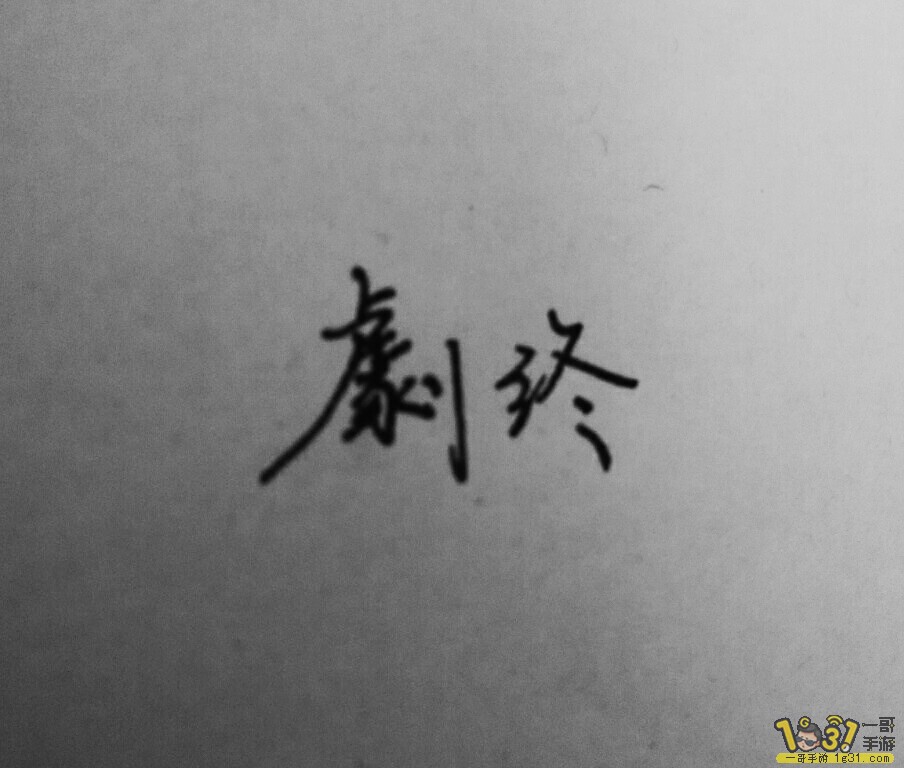 劇终
1G31 一哥手游
一哥手游 1g31.com